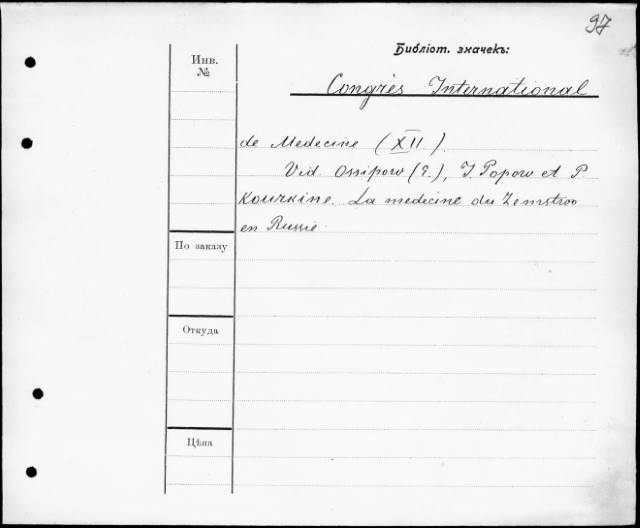 97
Библіот. значекъ:
Инв.
№
Congrès International
de Medecine (XII).
Vid. Ossipow (E.), I. Popow et P
Kourkine. La medecine du Zemstwo
en Russie.
По заказу
Откуда
Цѣна